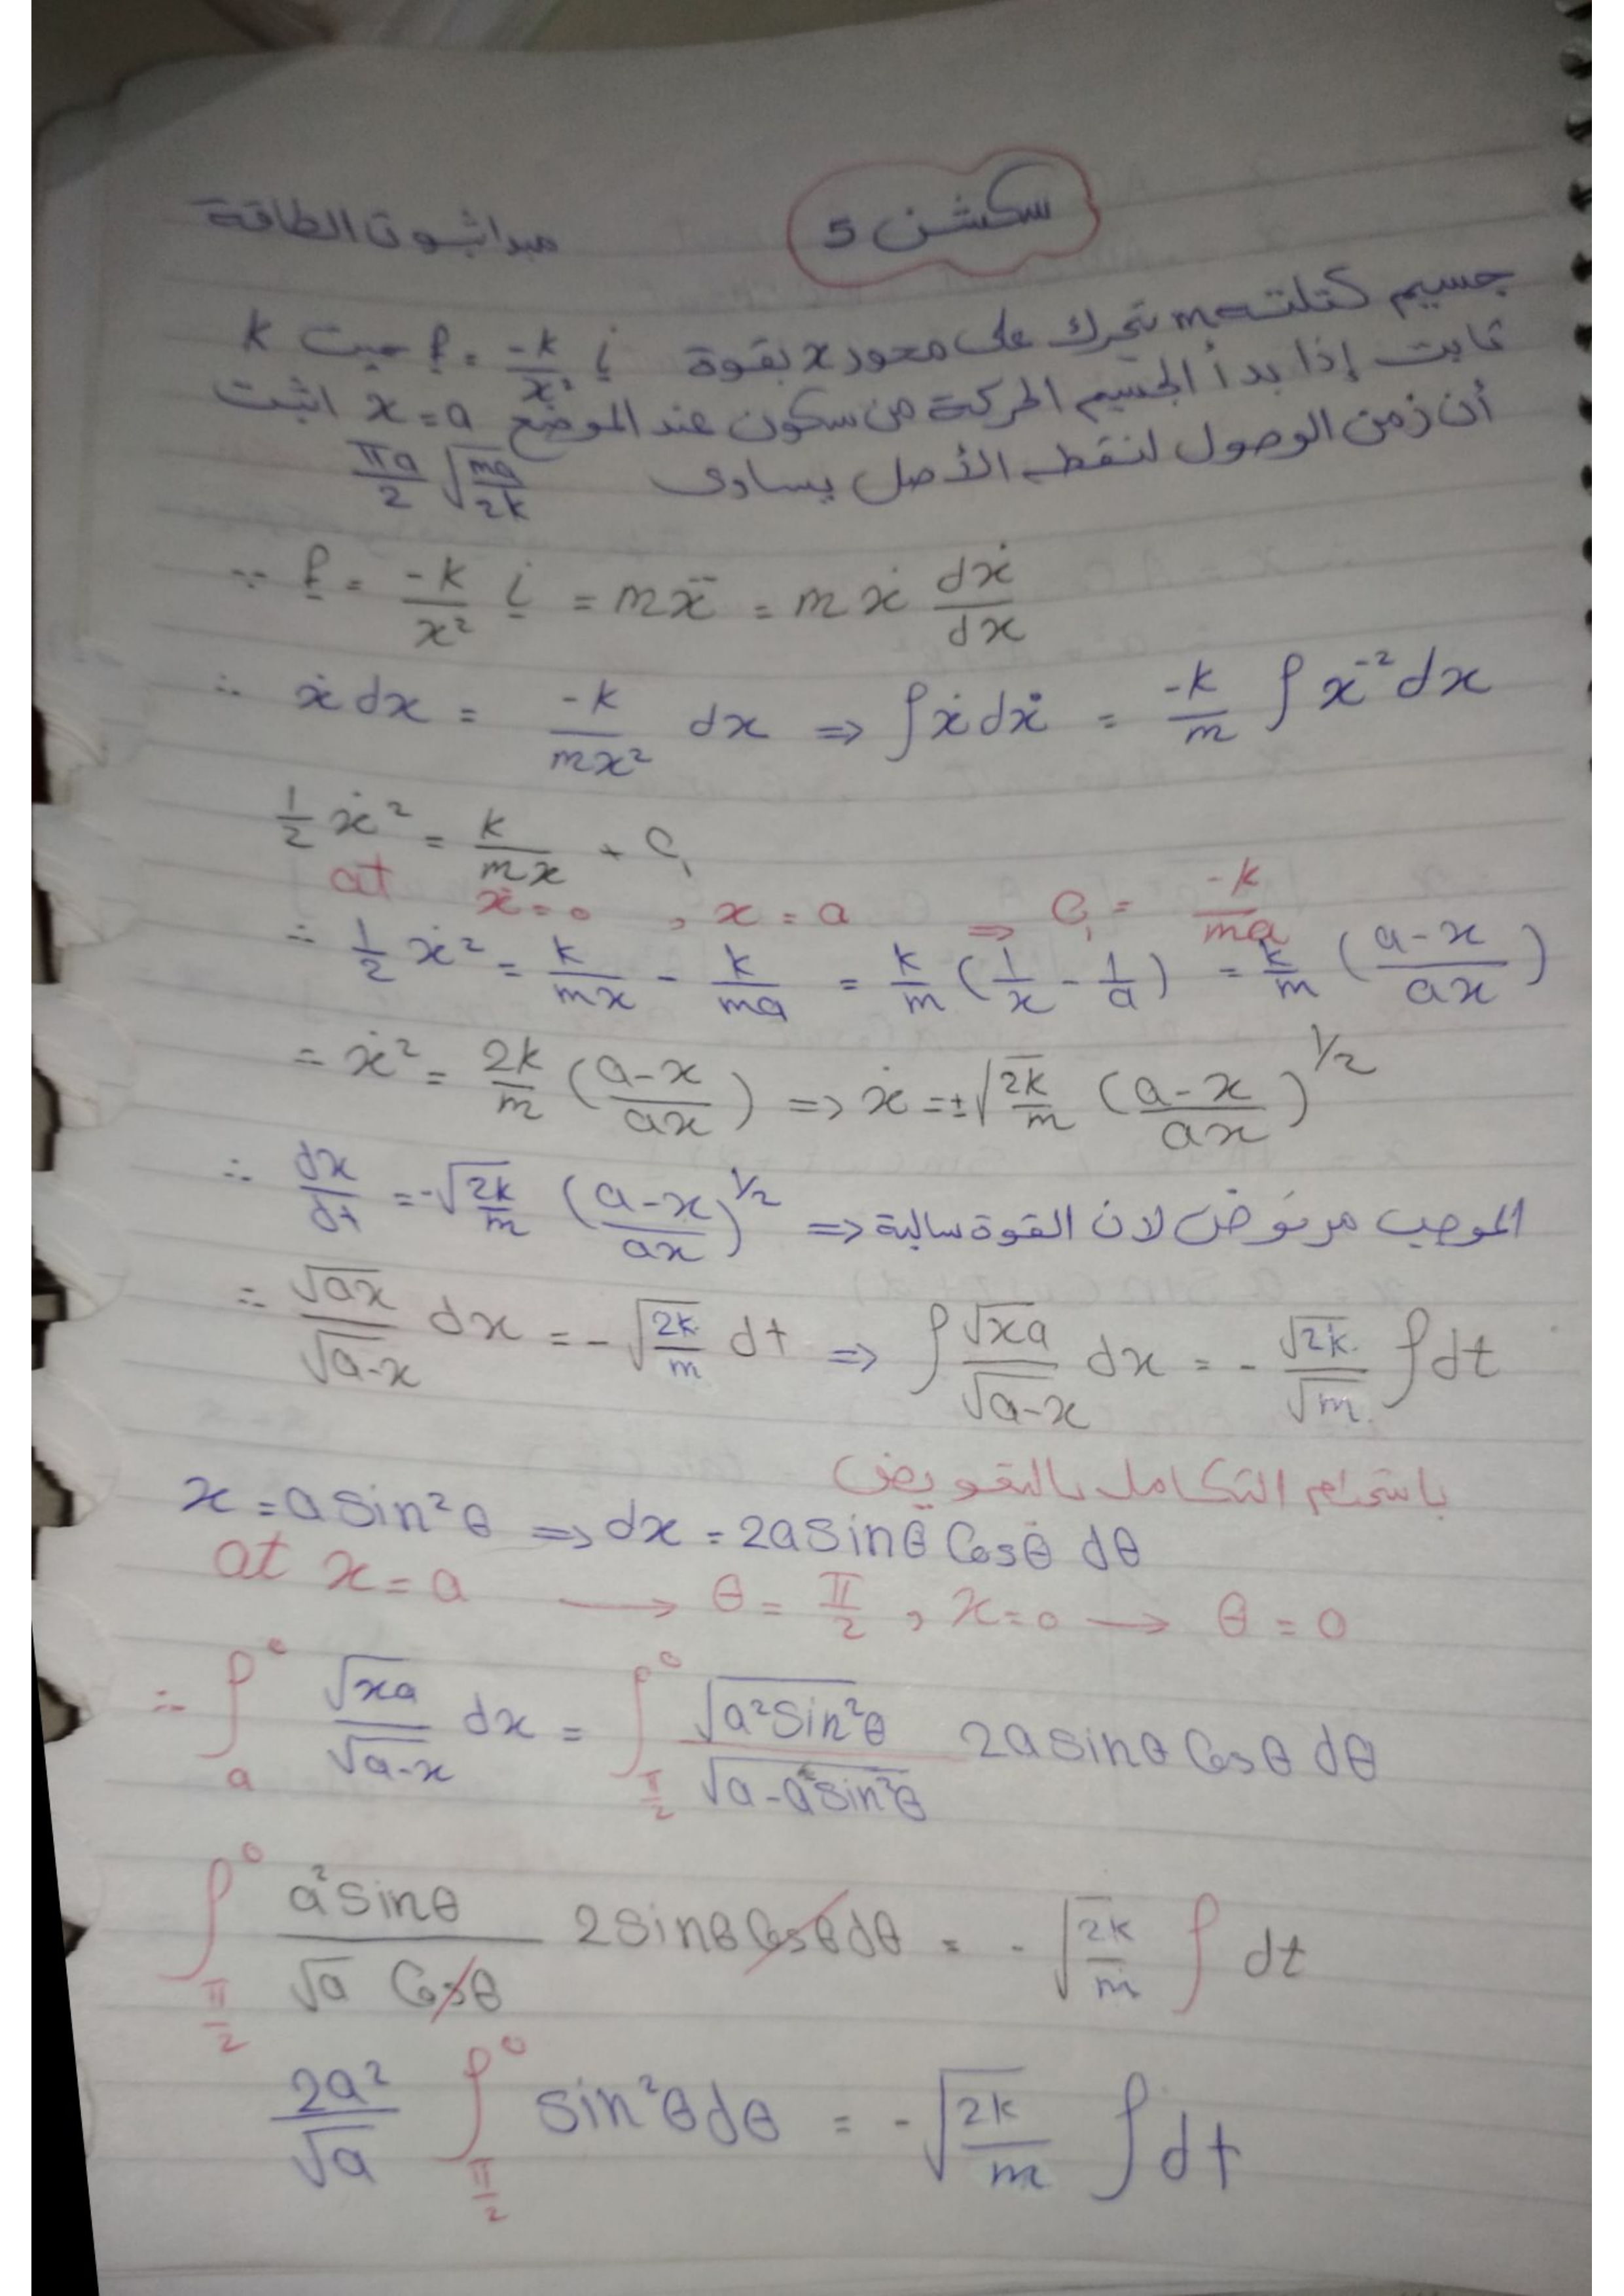 سكشن 5
مبدأ ثبوت الطاقة
جسيم كتلته m يتحرك على محور x بقوة f = -k/x² i حيث k
ثابت إذا بدأ الجسيم الحركة من سكون عند الموضع x = a اثبت
أن زمن الوصول لنقطه الأصل يساوى πa/2 √(ma/2k)
∵ f = -k/x² i = mẍ = m ẋ dẋ/dx
∴ ẋ dx = -k/mx² dx => ∫ẋ dẋ = -k/m ∫ x⁻² dx
1/2 ẋ² = k/mx + C₁
at ẋ = 0 , x = a => C₁ = -k/ma
∴ 1/2 ẋ² = k/mx - k/ma = k/m (1/x - 1/a) = k/m (a-x/ax)
= ẋ² = 2k/m (a-x/ax) => ẋ = ±√(2k/m) (a-x/ax)^1/2
∴ dx/dt = -√(2k/m) (a-x/ax)^1/2 <= الموجب مرفوض لان القوة سالبة
∴ √ax/√a-x dx = -√(2k/m) dt => ∫ √xa/√a-x dx = - √2k/√m ∫dt
باستخدام التكامل بالتعويض
x = a sin²θ => dx = 2a sinθ Cosθ dθ
at x = a → θ = π/2 , x = 0 → θ = 0
∴ ∫ₐ⁰ √xa/√a-x dx = ∫_{π/2}^0 √a²sin²θ/√a-a²sin²θ 2a sinθ Cosθ dθ
∫_{π/2}^0 a²sinθ/√a Cosθ 2sinθ Cosθ dθ = -√(2k/m) ∫ dt
2a²/√a ∫_{π/2}^0 sin²θ dθ = -√(2k/m) ∫dt